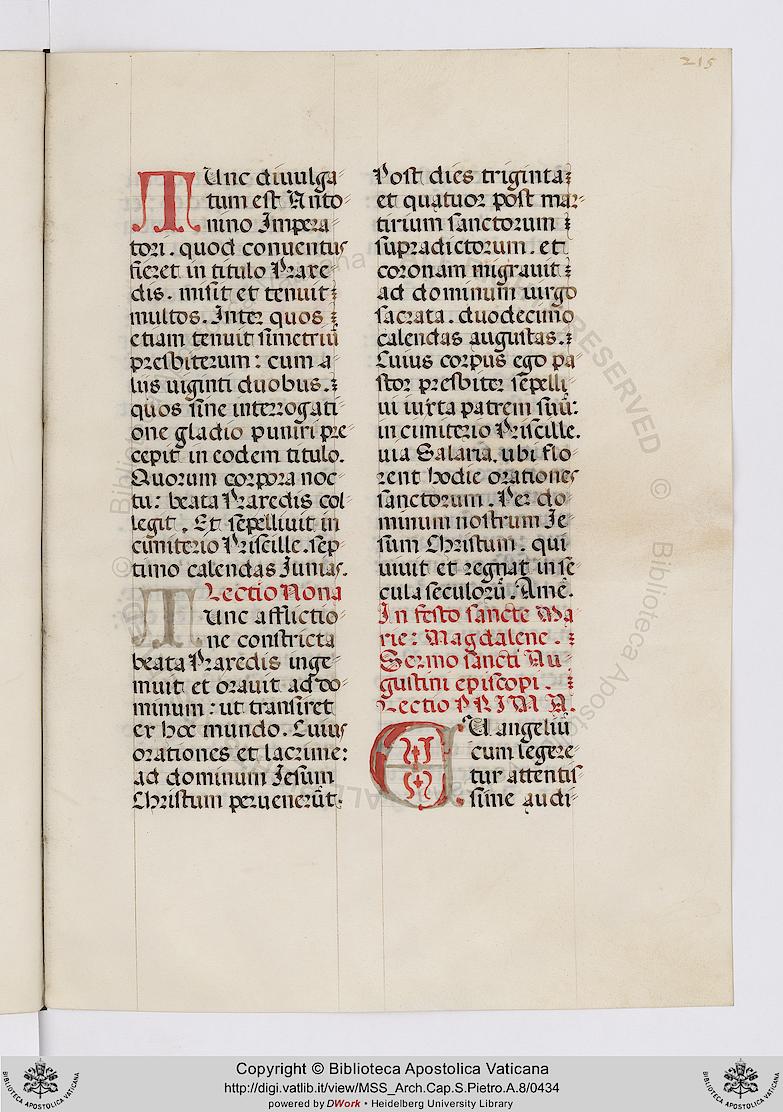 215
TUnc diuulga
tum est Anto
nino Impera
tori. quod conuentus
fieret in titulo Praxe
dis. misit et tenuit
multos. Inter quos
etiam tenuit simetriū
presbiterum: cum a
liis uiginti duobus.
quos sine interrogati
one gladio puniri pre
cepit in eodem titulo.
Quorum corpora noc
tu: beata Praxedis col
legit. Et sepelliuit in
cimiterio Priscille. sep
timo calendas Iunias.
Lectio Nona
TUnc afflictio
ne constricta
beata Praxedis inge
muit et orauit ad do
minum: ut transiret
ex hoc mundo. Cuius
orationes et lacrime:
ad dominum Iesum
Christum peruenerūt.
Post dies triginta
et quatuor post mar
tirium sanctorum
supradictorum. et
coronam migrauit
ad dominum uirgo
sacrata. duodecimo
calendas augustas.
Cuius corpus ego pa
stor presbiter sepelli
ui iuxta patrem suū:
in cimiterio Priscille.
uia Salaria. ubi flo
rent hodie orationes
sanctorum. Per do
minum nostrum Ie
sum Christum. qui
uiuit et regnat in se
cula seculorū. Amē.
In festo sancte Ma
rie: Magdalene.
Sermo sancti Au
gustini episcopi.
Lectio PRIMA.
EUangeliū
cum legere
tur attentis
sime audi
Copyright © Biblioteca Apostolica Vaticana
http://digi.vatlib.it/view/MSS_Arch.Cap.S.Pietro.A.8/0434
powered by DWork • Heidelberg University Library